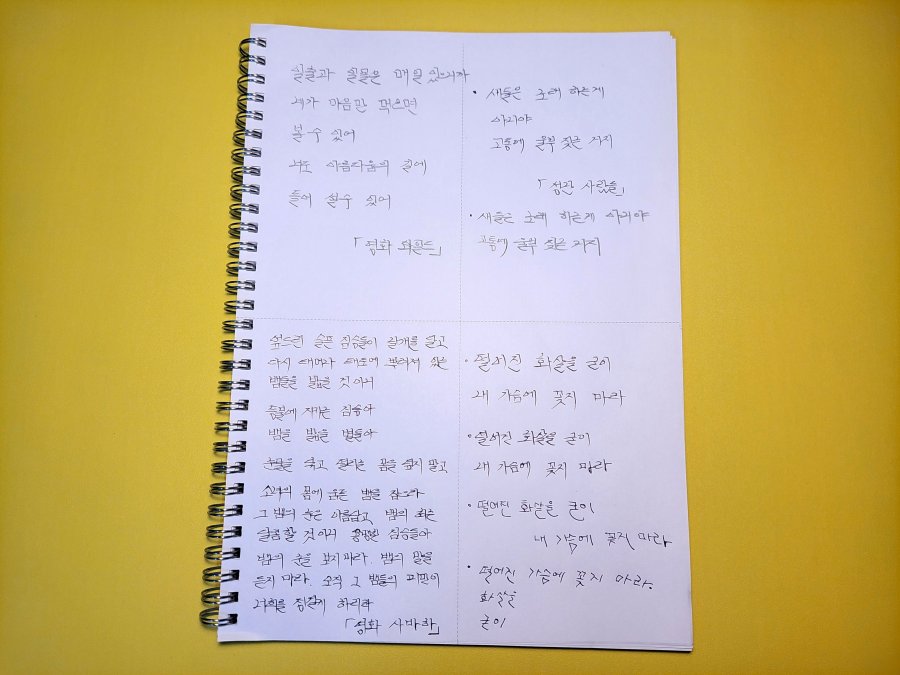 일출과 일몰은 매일 있으니까
네가 마음만 먹으면
볼 수 있어
너도 아름다움의 길에
들어 설수 있어
「영화 와일드」
· 새들은 노래 하는게
아니야
고통에 울부 짖는 거지
「성난 사람들」
· 새들은 노래 하는게 아니야
고통에 울부 짖는 거지
슬픈 짐승들이 날개를 달고
다시 태어나 태초에 뿌려져 있는
뱀들을 밟을 것이니
등불에 자라는 짐승아
뱀을 밟을 별들아
눈물을 떨리는 몸을 말고
소녀의 몸에 움튼 뱀을 잡으라
그 뱀의 눈은 아름답고 뱀의 혀는
달콤할 것이니 짐승들아
뱀의 눈을 보지마라. 뱀의 말을
듣지 마라. 오직 그 뱀들의 피만이
너희를 정결케 하리라
「영화 사바하」
· 떨어진 화살을 굳이
내 가슴에 꽂지 마라
· 떨어진 화살을 굳이
내 가슴에 꽂지 마라
· 떨어진 화살을 굳이
내 가슴에 꽂지 마라
· 떨어진 가슴에 꽂지 마라.
화살을
굳이